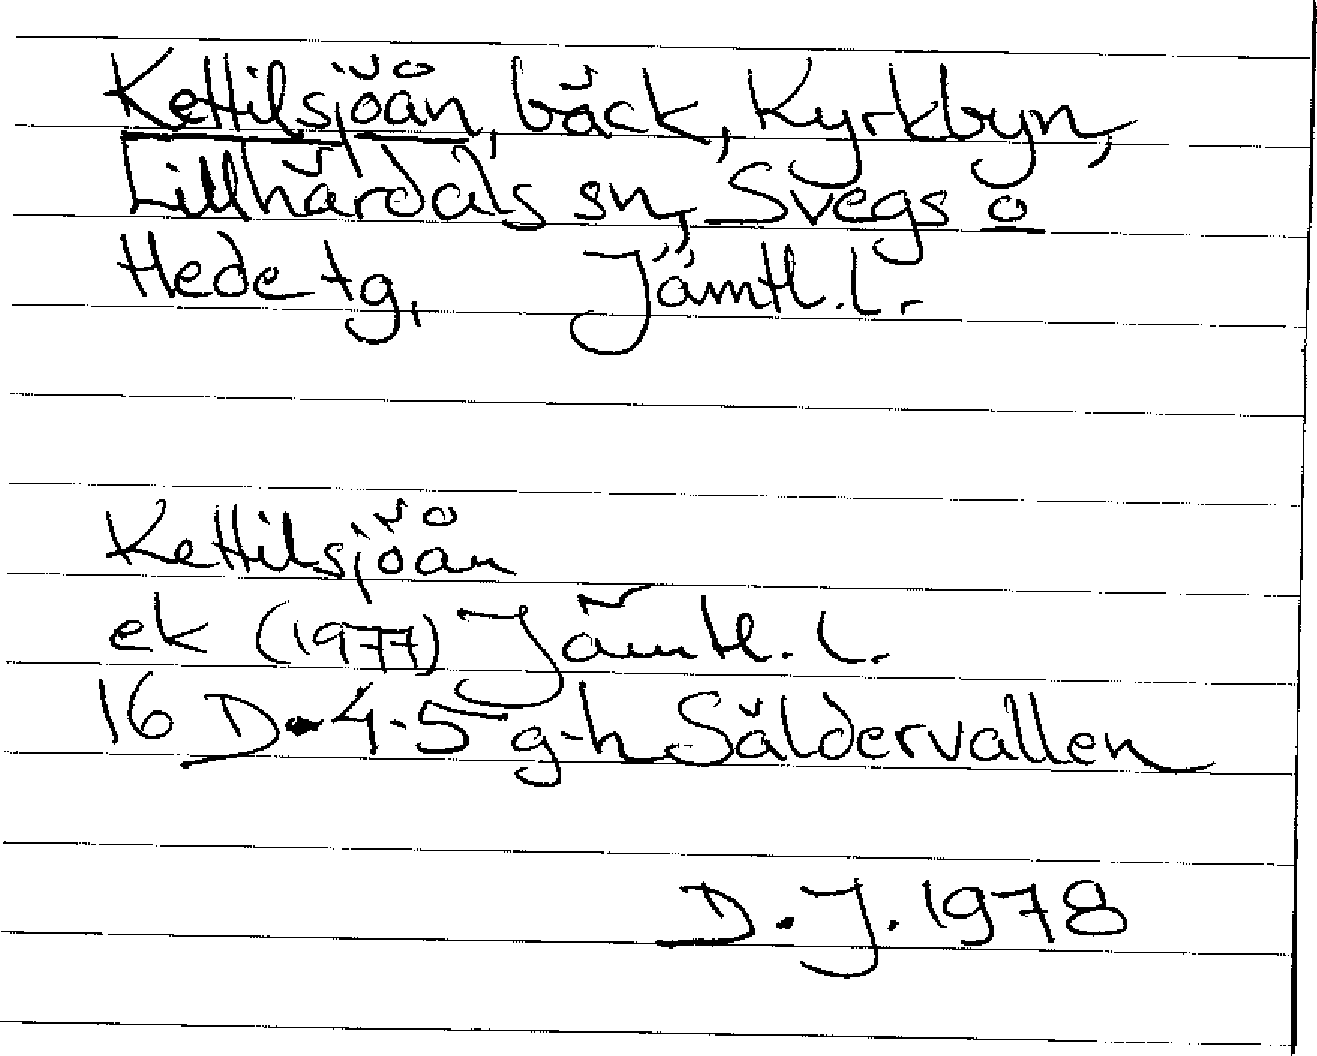 Kettilsjöån, bäck, Kyrkbyn,
Lillhärdals sn, Svegs o
Hede tg, Jämtl. l.
Kettilsjöån
ek (1977) Jämtl. l.
16 D. 4-5 g-h Säldervallen
D. J. 1978